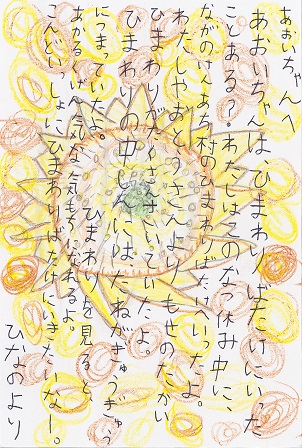 あおいちゃんへ
あおいちゃんは、ひまわりばたけにいった
ことある？わたしはこのなつ休み中に、
ながのけんあち村のひまわりばたけへいったよ。
わたしやおとうさんよりもせのたかい
ひまわりがたくさんさいていたよ。
ひまわりの中しんにはたねがぎゅうぎゅう
につまっていたよ。ひまわりを見ると、
あかるくげん気な気もちになれるよ。
こんどいっしょにひまわりばたけにいきたいなー。
ひなのより